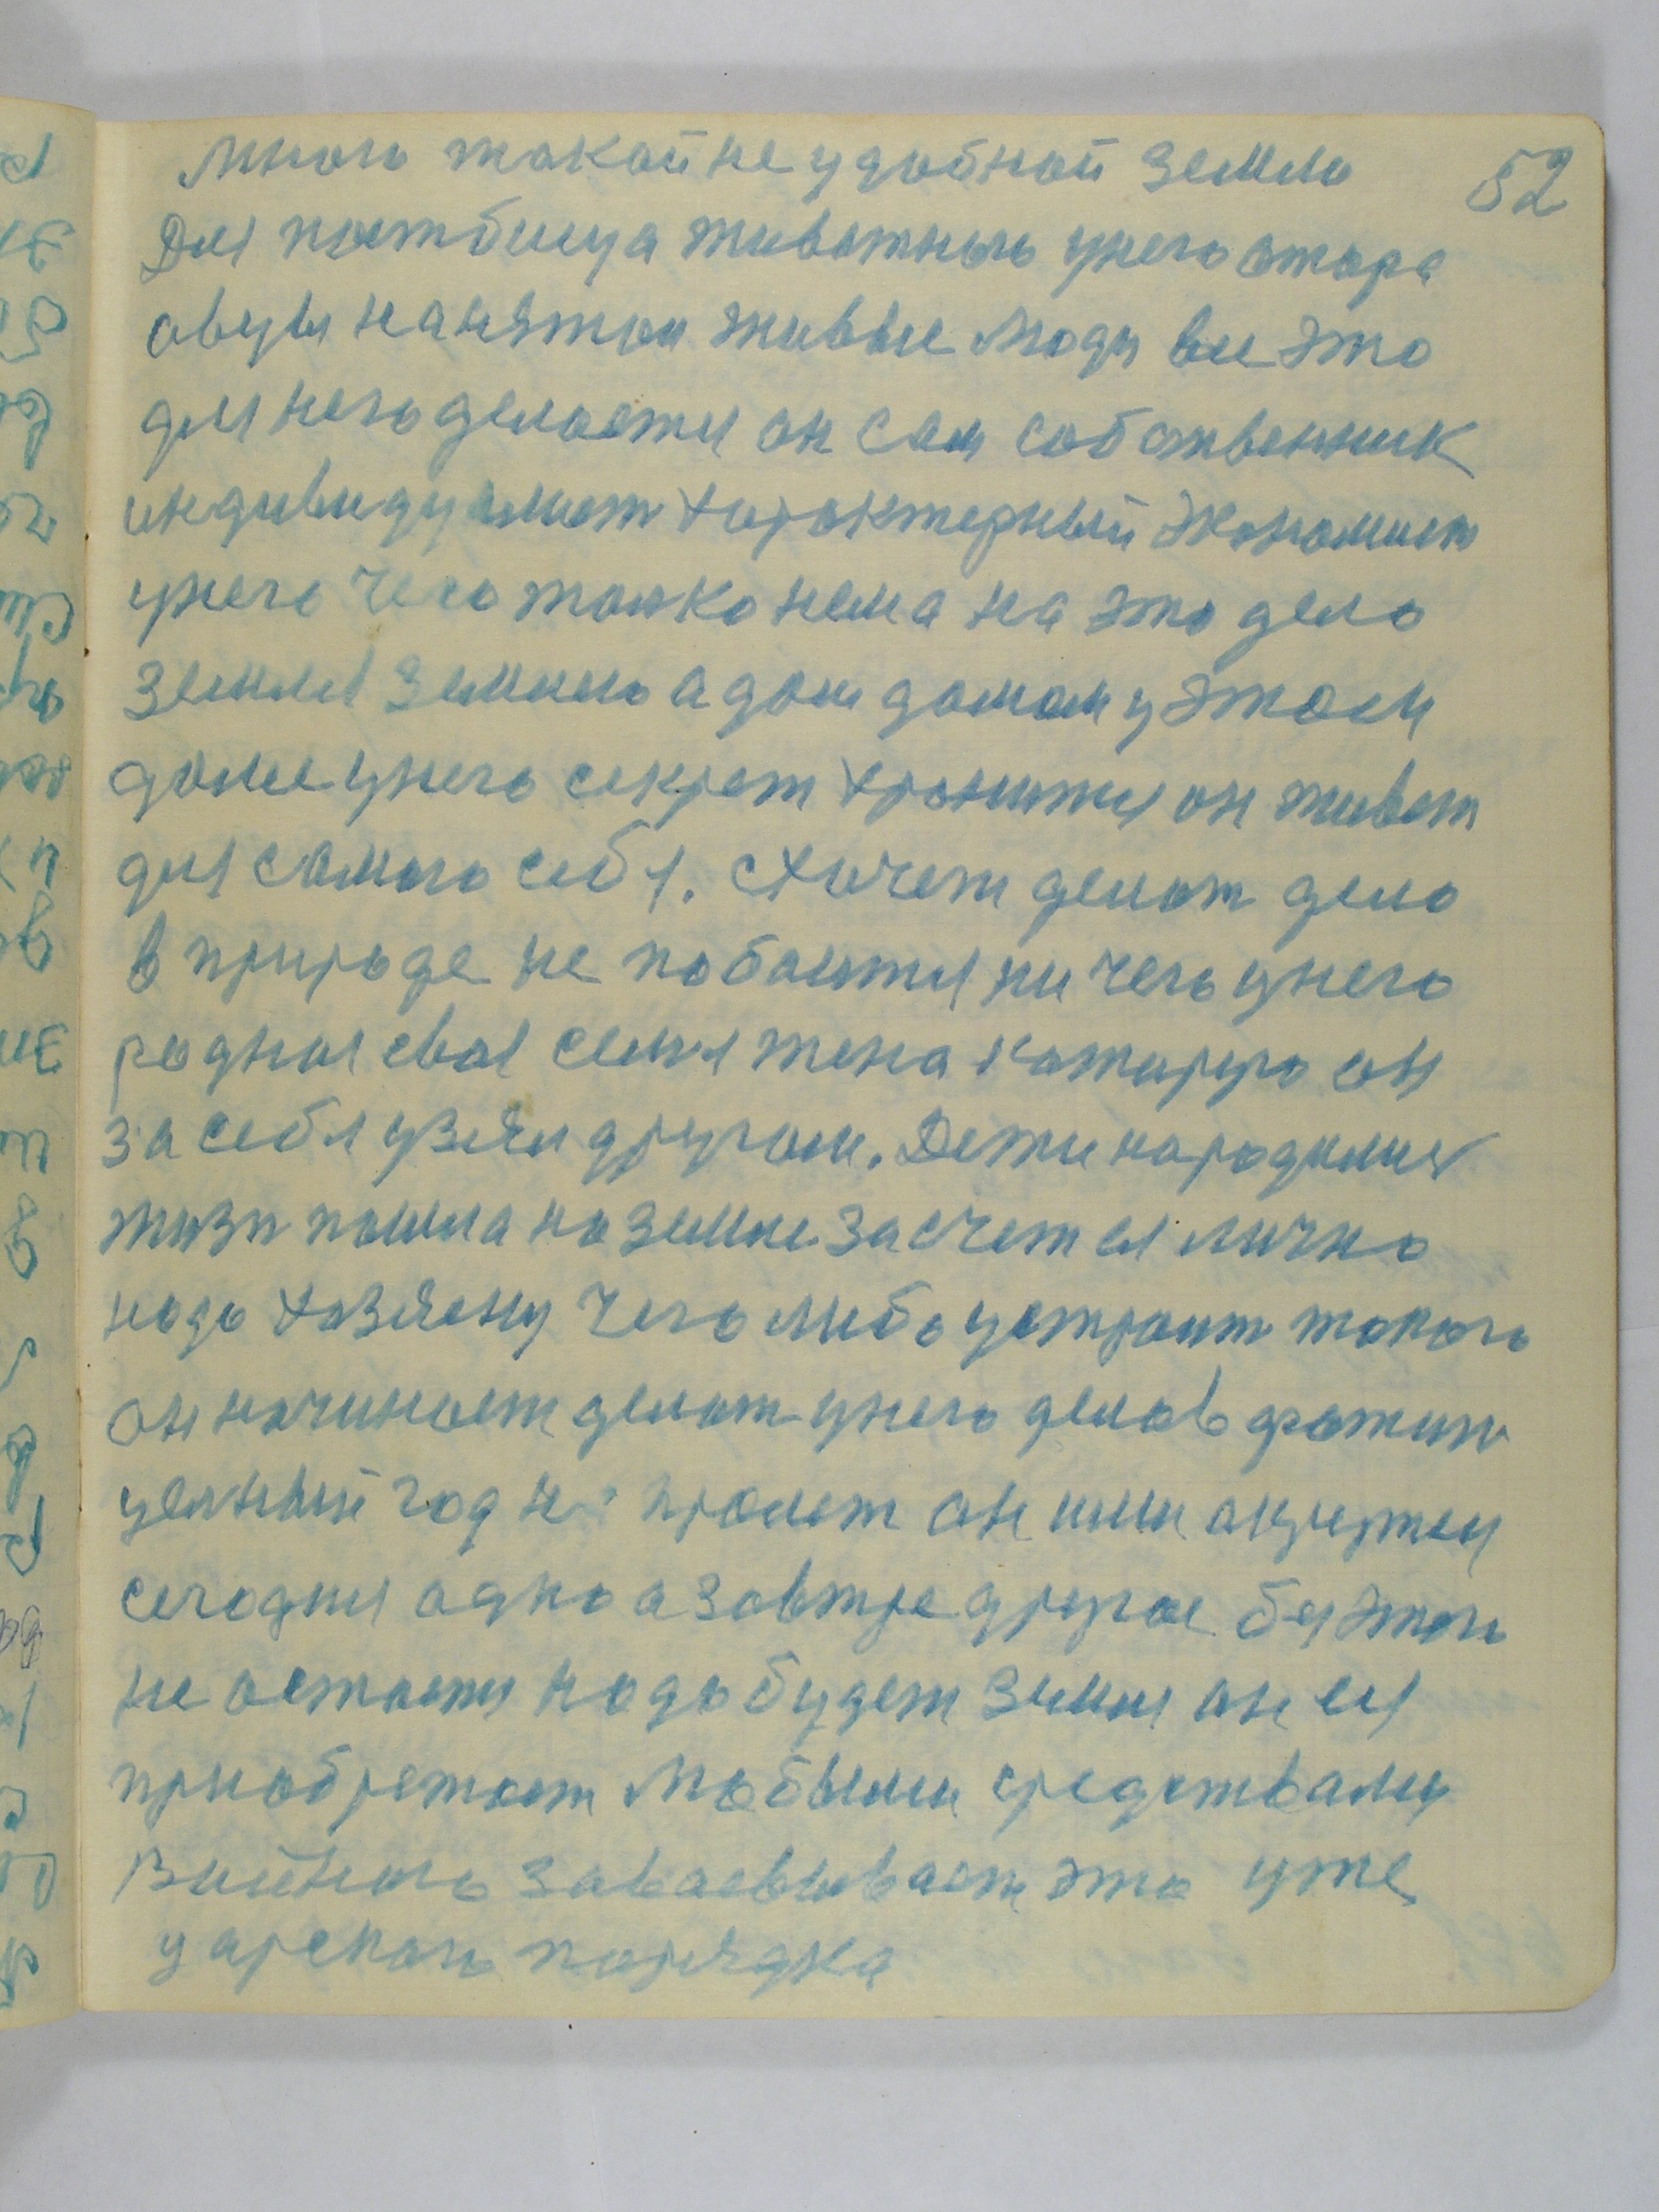 52
много такой не удобной земли
Для пастбища животных унего отара
овцы нанятои живые люди все это
для него делается он сам собственник
индивидуалист характерный экономист
унего чего толко нема на это дело
земля землею а дом домом у этом
доме унего секрет хранится он живет
для самого себя. Хочет делат дело
в природе не побоится ни чего унего
родная своя семия жена каторую он
за себя узял другом. Дети народилися
жизн пошла на земле за счет ея лично
надо хозяену чего либо устроит такого
он начинает делат унего делов фатит
целный год не пролет он ими окружен
сегодня одно а завтре другое без этого
не остается надо будет земля он ея
приобретает любыми средствами
Войною завоевывает это уже
царского порядка